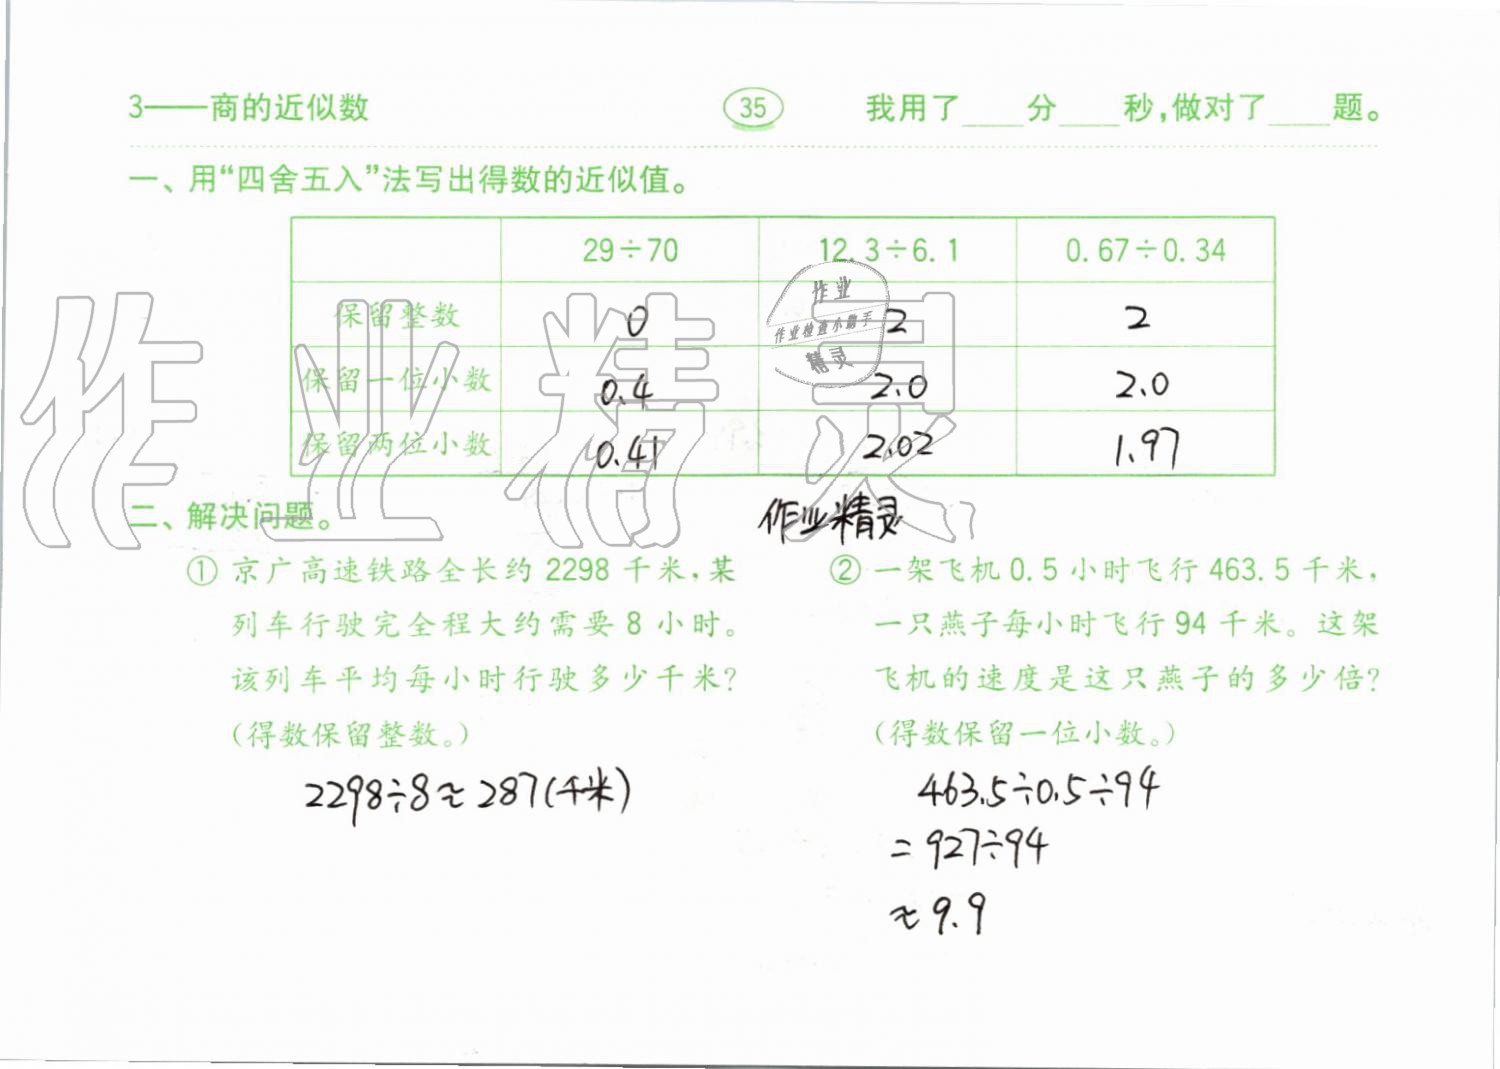 3——商的近似数 35 我用了____分____秒,做对了____题。
一、用“四舍五入”法写出得数的近似值。
29÷70 12.3÷6.1 0.67÷0.34
保留整数 0 2 2
保留一位小数 0.4 2.0 2.0
保留两位小数 0.41 2.02 1.97
作业
作业检查小助手
精灵
作业精灵
二、解决问题。
作业精灵
① 京广高速铁路全长约 2298 千米,某
列车行驶完全程大约需要 8 小时。
该列车平均每小时行驶多少千米?
(得数保留整数。)
2298÷8≈287(千米)
② 一架飞机 0.5 小时飞行 463.5 千米,
一只燕子每小时飞行 94 千米。这架
飞机的速度是这只燕子的多少倍?
(得数保留一位小数。)
463.5÷0.5÷94
=927÷94
≈9.9